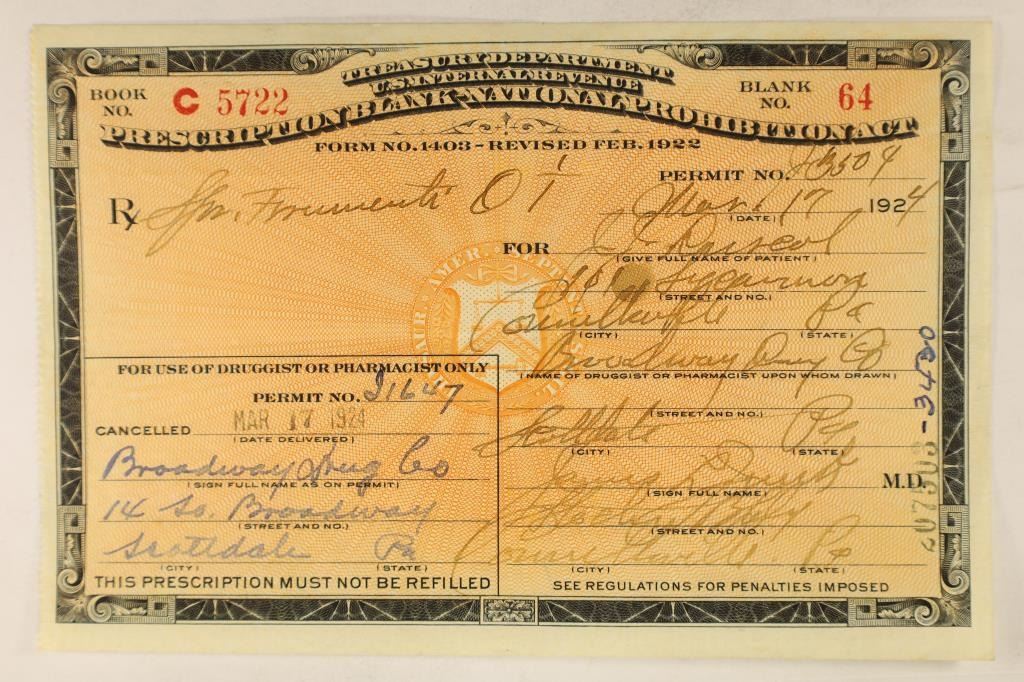 TREASURY DEPARTMENT
U.S. INTERNAL REVENUE
PRESCRIPTION BLANK-NATIONAL PROHIBITION ACT
BOOK NO. C 5722
BLANK NO. 64
FORM NO. 1403 - REVISED FEB. 1922
PERMIT NO.
Rx Spr. Frumenti O I
Mar. 17 1924
(DATE)
FOR J. Driscol
(GIVE FULL NAME OF PATIENT)
Sycamore
(STREET AND NO.)
Connellsville Pa
(CITY) (STATE)
Broadway Drug Co
(NAME OF DRUGGIST OR PHARMACIST UPON WHOM DRAWN)
(STREET AND NO.)
Scottdale Pa
(CITY) (STATE)
James M.D.
(SIGN FULL NAME)
(STREET AND NO.)
Connellsville Pa
(CITY) (STATE)
SEE REGULATIONS FOR PENALTIES IMPOSED
FOR USE OF DRUGGIST OR PHARMACIST ONLY
PERMIT NO. 21647
CANCELLED MAR 17 1924
(DATE DELIVERED)
Broadway Drug Co
(SIGN FULL NAME AS ON PERMIT)
14 So. Broadway
(STREET AND NO.)
Scottdale Pa
(CITY) (STATE)
THIS PRESCRIPTION MUST NOT BE REFILLED
207503 - 3430